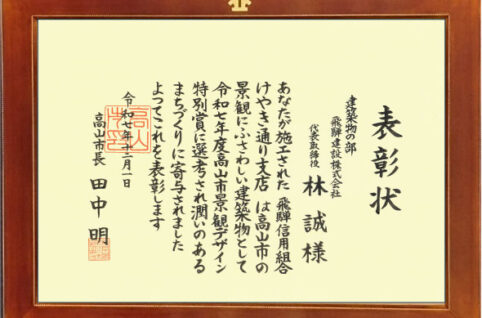 表彰状
建築物の部
飛驒建設株式会社
代表取締役 林 誠 様
あなたが施工された 飛驒信用組合
けやき通り支店 は高山市の
景観にふさわしい建築物として
令和七年度高山市景観デザイン
特別賞に選考され潤いのある
まちづくりに寄与されました
よってこれを表彰します
令和七年十二月一日
高山市長 田中 明